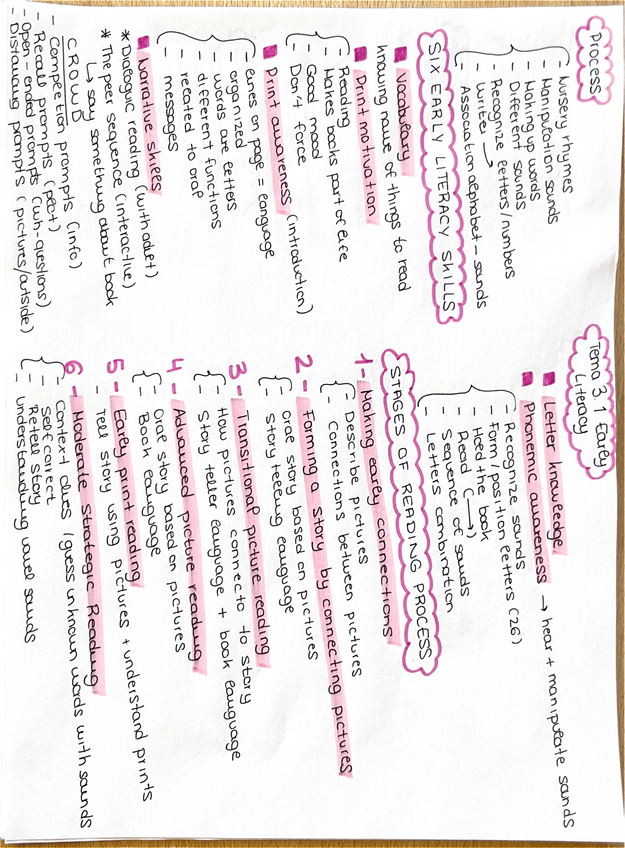 Process
- Nursery rhymes
- Manipulation sounds
- Making up words
- Different sounds
- Recognize letters/numbers
- Write →
- Association alphabet - sounds
SIX EARLY LITERACY SKILLS
Vocabulary
knowing name of things to read
Print motivation
- Reading
- Makes books part of life
- Good mood
- Don't force
Print awareness (introduction)
- Lines on page = language
- organized
- words are letters
- different functions
- related to oral
messages
Narrative skills
* Dialogic reading (with adult)
* The peer sequence (interactive)
↳ say something about book
CROWD
- Completion prompts (info)
- Recall prompts (past)
- Open-ended prompts (wh-questions)
- Distawng prompts (pictures/outside)
Tema 3.1 Early
Literacy
Letter knowledge
Phonemic awareness → hear + manipulate sounds
- Recognize sounds
- Form/position letters (26)
- Hold the book
- Read (→)
- Sequence of sounds
- Letters combination
STAGES OF READING PROCESS
1- Making early connections
- Describe pictures
- Connections between pictures
2- Forming a story by connecting pictures
- Oral story based on pictures
- Story telling language
3- Transitional picture reading
- How pictures connecto to story
- Story teller language + book language
4- Advanced picture reading
- Oral story based on pictures
- Book language
5- Early print reading
- Tell story using pictures + understand prints
6- Moderate Strategic Reading
- Context clues (guess unknown words with sounds
- Self correct
- Retell story
- understanding vowel sounds